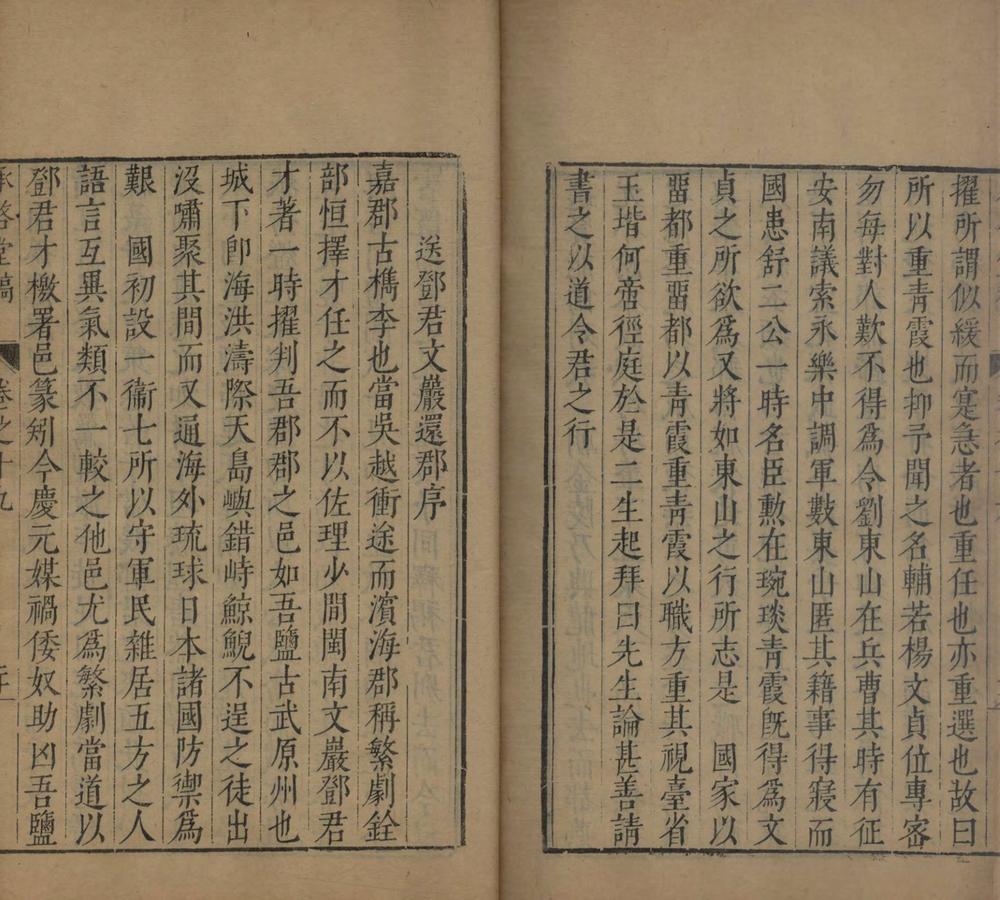 擢所謂似緩而寔急者也重任也亦重選也故曰
所以重青霞也抑予聞之名輔若楊文貞位專密
勿每對人歎不得爲令劉東山在兵曹其時有征
安南議索永樂中調軍數東山匿其籍事得寢而
國患舒二公一時名臣勲在琬琰青霞旣得爲文
貞之所欲爲又將如東山之行所志是　國家以
畱都重畱都以青霞重青霞以職方重其視臺省
玉堦何啻徑庭於是二生起拜曰先生論甚善請
書之以道令君之行
送鄧君文巖還郡序
嘉郡古檇李也當吳越衝途而濱海郡稱繁劇銓
部恒擇才任之而不以佐理少間閩南文巖鄧君
才著一時擢判吾郡郡之邑如吾鹽古武原州也
城下卽海洪濤際天島嶼錯峙鯨鯢不逞之徒出
沒嘯聚其間而又通海外琉球日本諸國防禦爲
艱　國初設一衞七所以守軍民雜居五方之人
語言互異氣類不一較之他邑尤爲繁劇當道以
鄧君才檄署邑篆矧今慶元媒禍倭奴助凶吾鹽
承啓堂稿　卷之十九